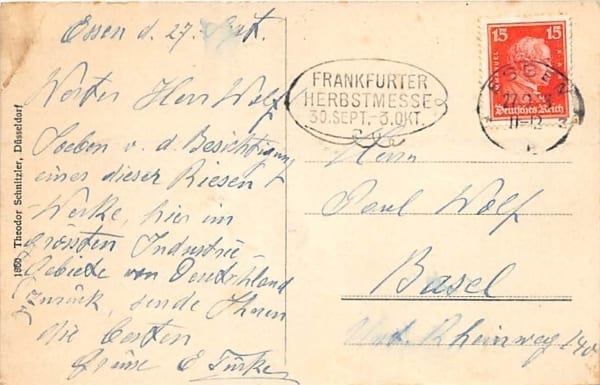 Essen d. 27.
Werter Herr Wolf
Soeben v. d. Besichtigung
einer dieser Riesen
Werke, hier im
grössten Industrie
Gebiete von Deutschland
zurück, sende Ihnen
die besten
Grüsse E. Türke
1860 Theodor Schnitzler, Düsseldorf
FRANKFURTER
HERBSTMESSE
30.SEPT.-3.OKT.
15 15
Deutsches Reich
ESSEN
11-12
Herrn
Paul Wolf
Basel
Unt. Rheinweg 140